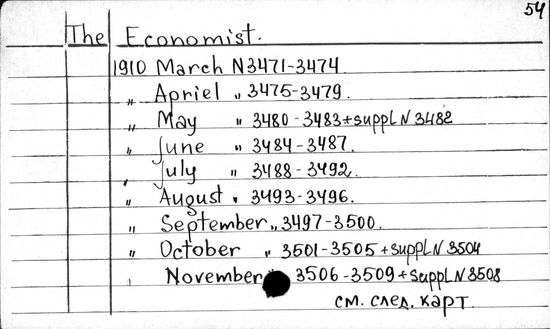 54
The Economist.
1910 March N3471-3474
„ Apriel „ 3475-3479.
„ May „ 3480-3483+suppl N 3482
„ June „ 3484-3487.
„ July „ 3488-3492.
„ August „ 3493-3496.
„ September „ 3497-3500.
„ October „ 3501-3505 + suppl N 3504
„ November „ 3506-3509 + suppl N 3508
см. след. карт.